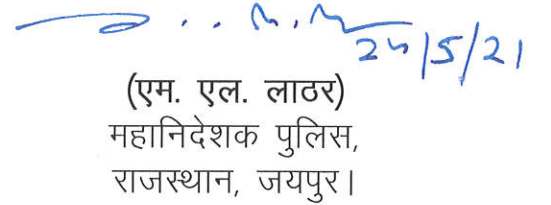 24/5/21
(एम. एल. लाठर)
महानिदेशक पुलिस,
राजस्थान, जयपुर।